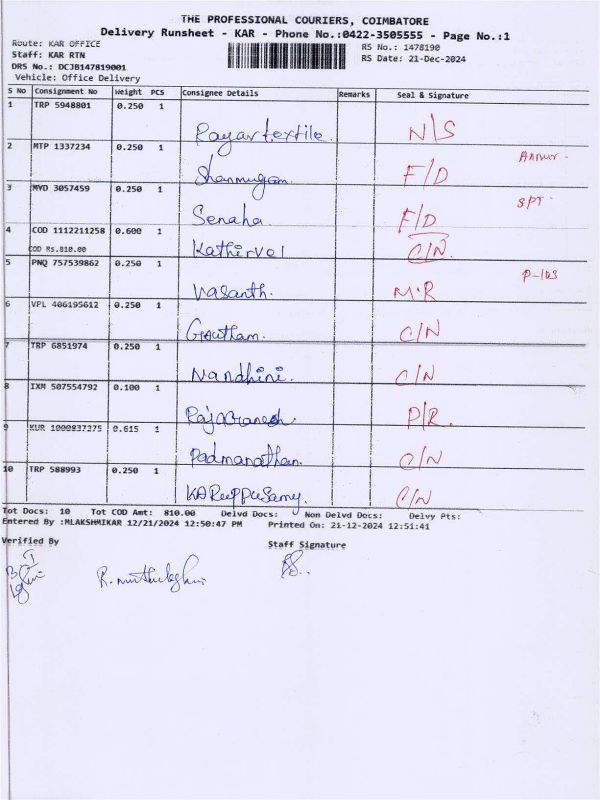 THE PROFESSIONAL COURIERS, COIMBATORE
Delivery Runsheet - KAR - Phone No.:0422-3505555 - Page No.:1
Route: KAR OFFICE
RS No.: 1478190
Staff: KAR RTN
RS Date: 21-Dec-2024
DRS No.: DCJB147819001
Vehicle: Office Delivery
S No Consignment No Weight PCS Consignee Details Remarks Seal & Signature
1 TRP 5948801 0.250 1
Rayar textile. N/S
2 MTP 1337234 0.250 1
Shanmugam. F/D
3 MYD 3057459 0.250 1 SPT-
Senaha F/D
4 COD 1112211258 0.600 1
COD Rs.810.00 Kathirvel C/N.
5 PNQ 757539862 0.250 1
Vasanth. M.R
6 VPL 406195612 0.250 1
Goutham. C/N
7 TRP 6851974 0.250 1
Nandhini. C/N
8 IXM 507554792 0.100 1
RajaGanesh P/R.
9 KUR 1000837275 0.615 1
Padmanathan. C/N
10 TRP 588993 0.250 1
KARuppusamy. C/N
Tot Docs: 10 Tot COD Amt: 810.00 Delvd Docs: Non Delvd Docs: Delvy Pts:
Entered By :MLAKSHMIKAR 12/21/2024 12:50:47 PM Printed On: 21-12-2024 12:51:41
Verified By Staff Signature